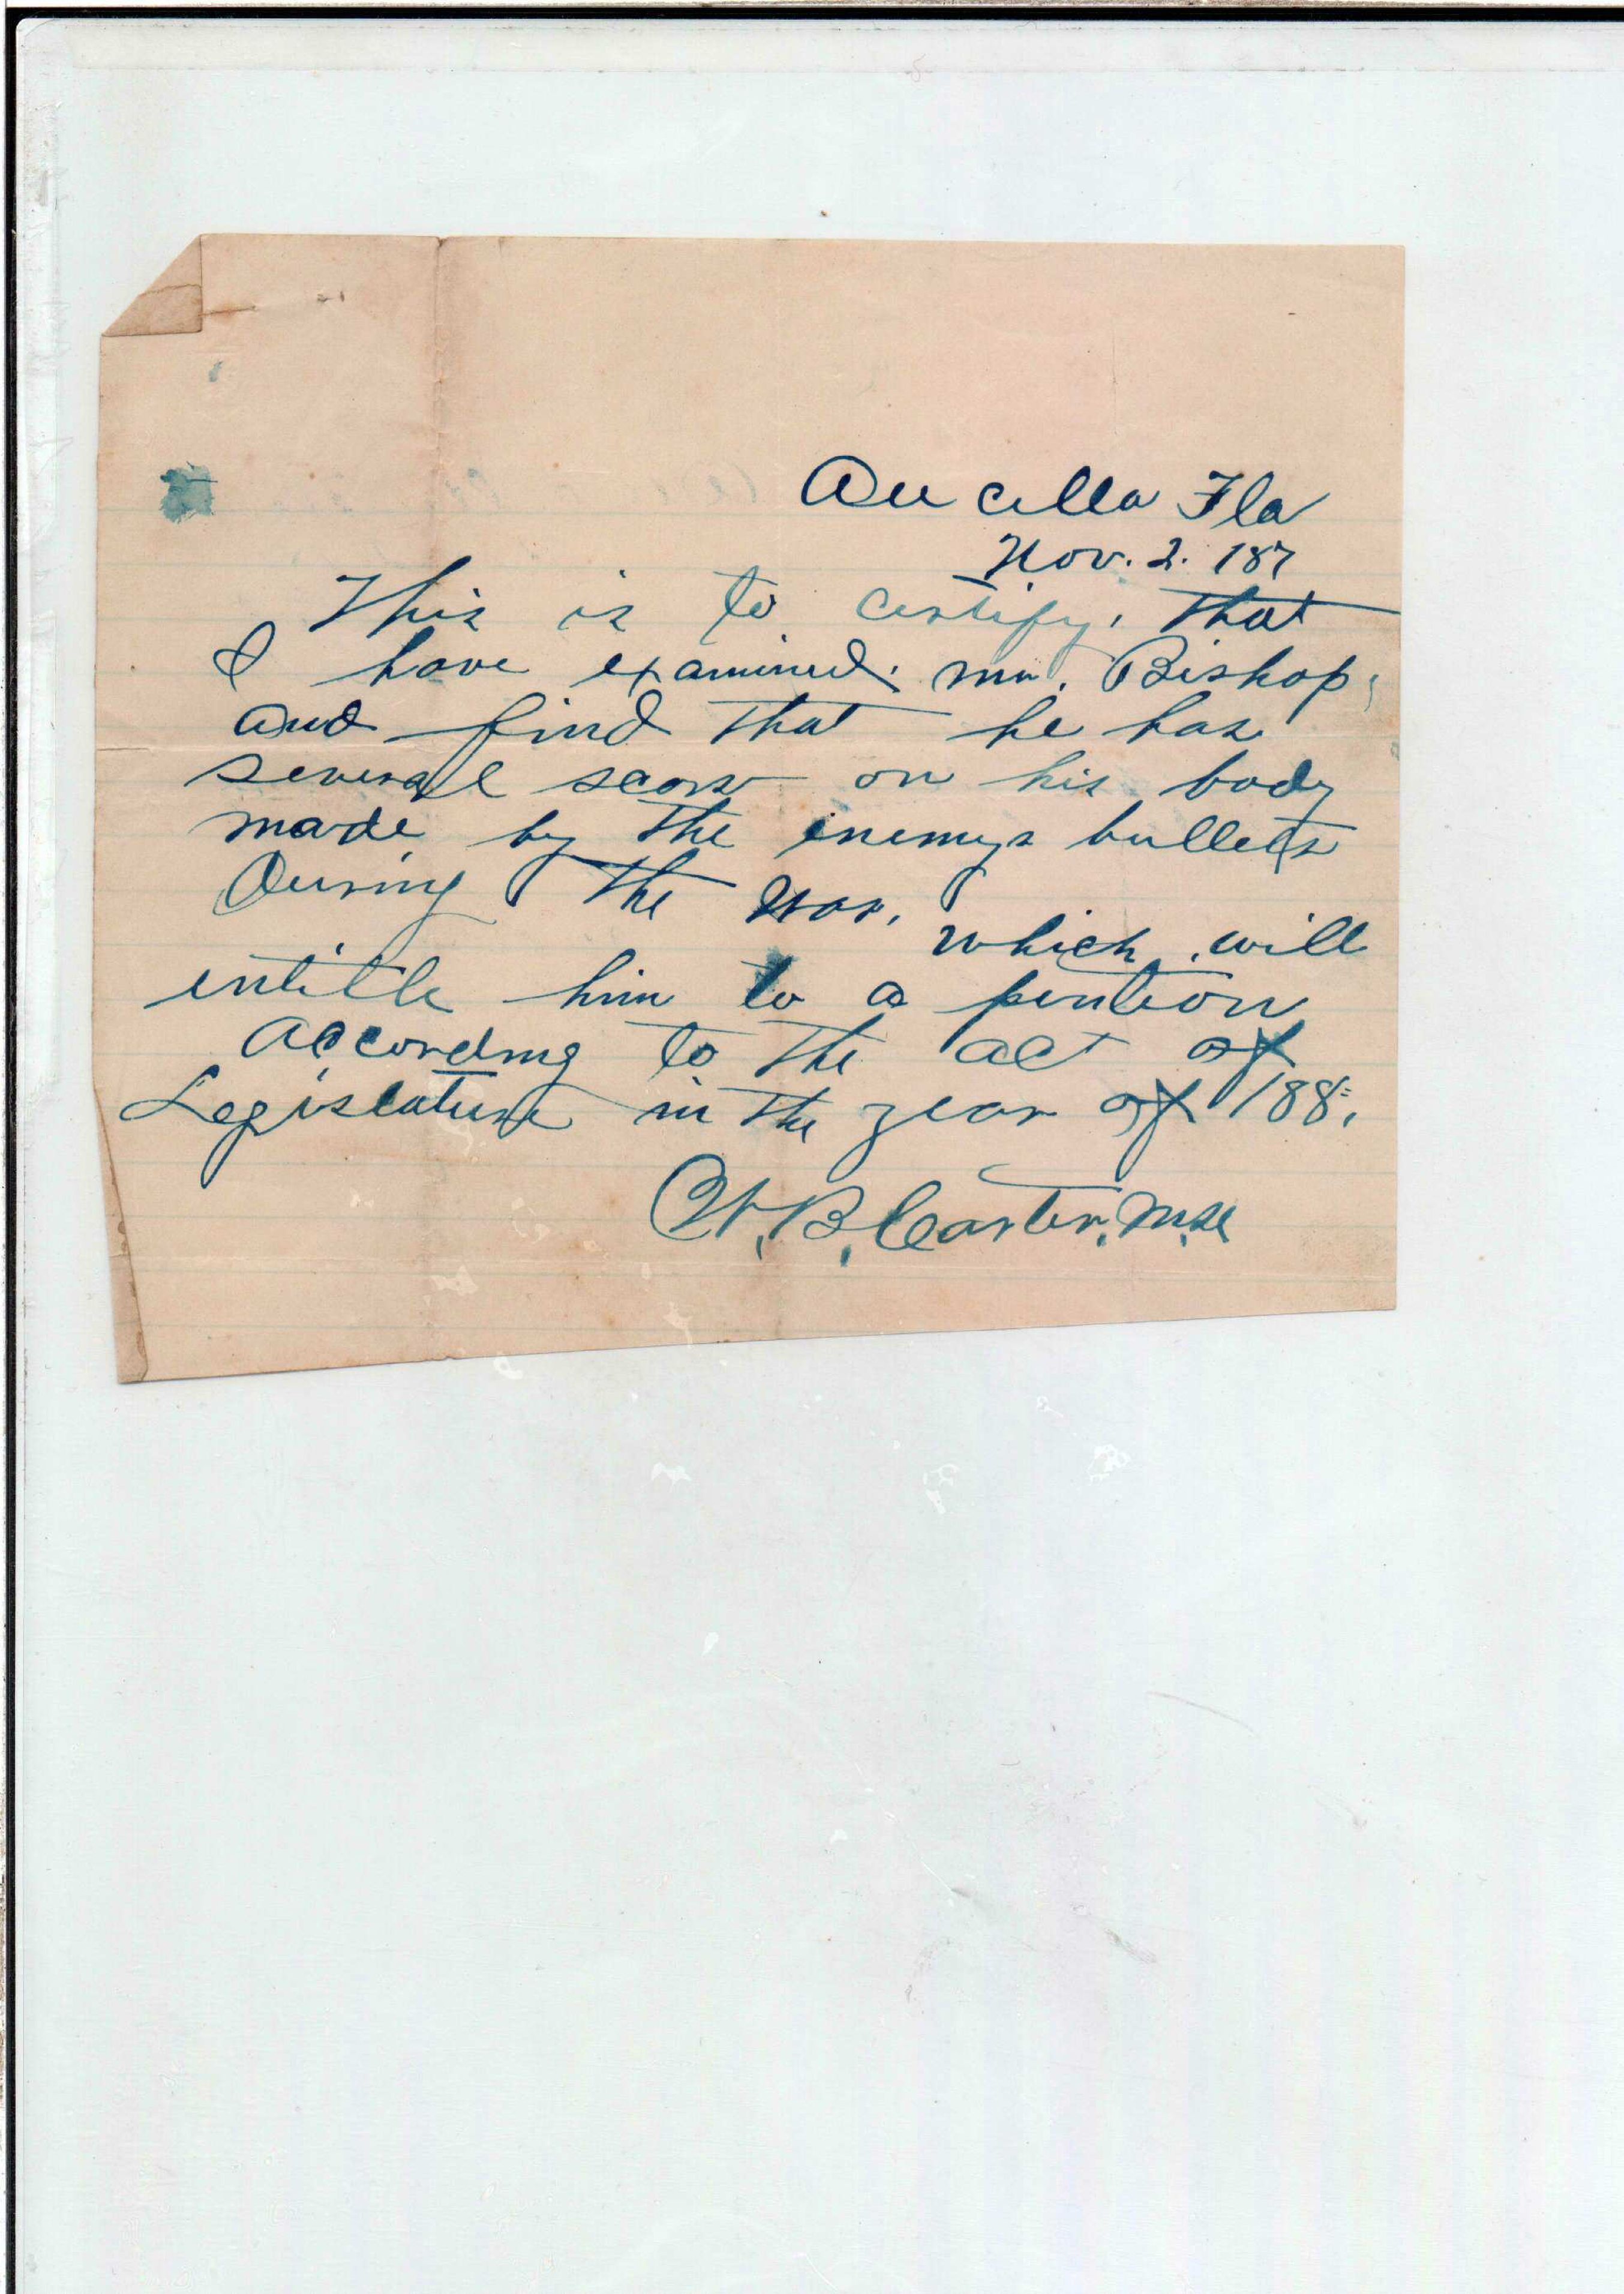 Aucilla Fla
Nov. 2. 187
This is to certify, that
I have examined. Mr. Bishop,
and find that he has
several scars on his body
made by the enemys bullets
During the war, which will
intitle him to a pention
according to the act of
Legislature in the year of 188
W. B. Carter. M.D.